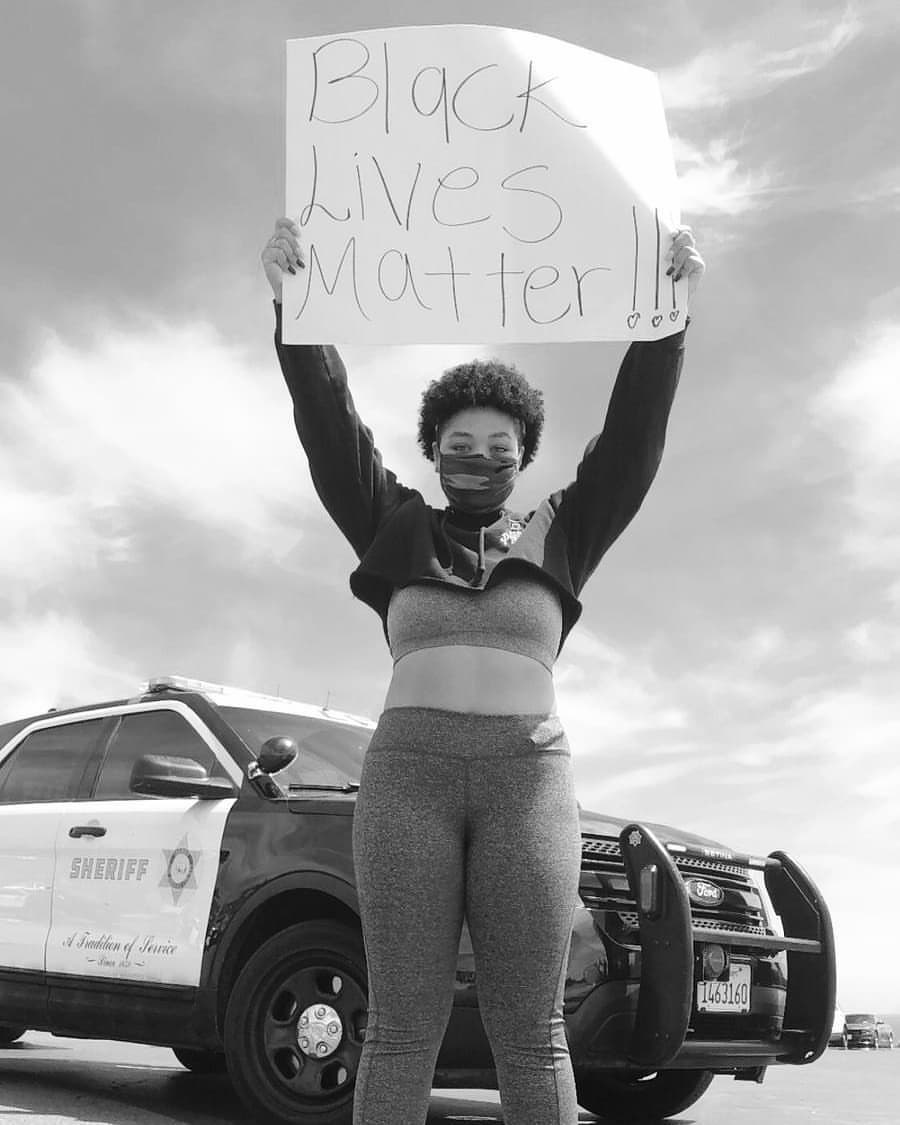 Black
Lives
Matter!!!
SHERIFF
A Tradition of Service
Ford
1463160